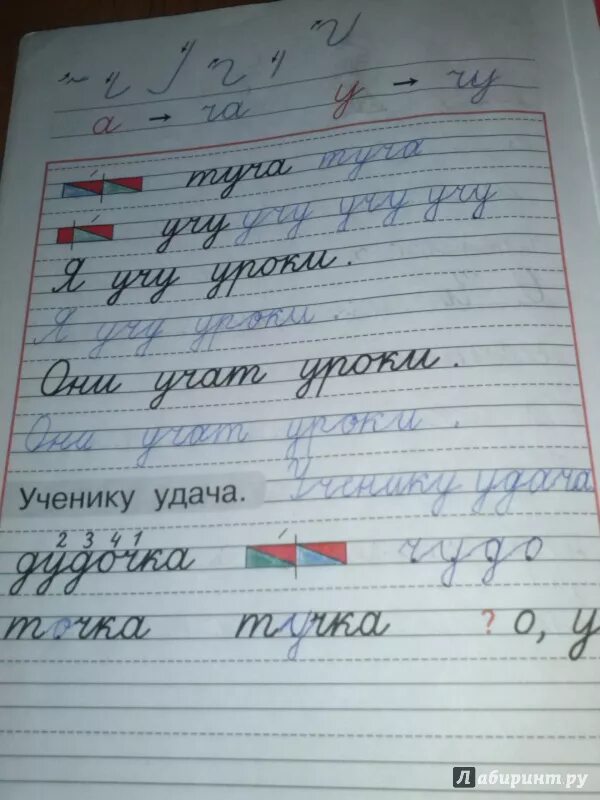 а → ча у → чу
туча туча
учу учу учу учу
Я учу уроки.
Я учу уроки.
Они учат уроки.
Они учат уроки.
Ученику удача. Ученику удача
2 3 4 1
дудочка чудо
точка тучка ? о, у
Лабиринт.ру